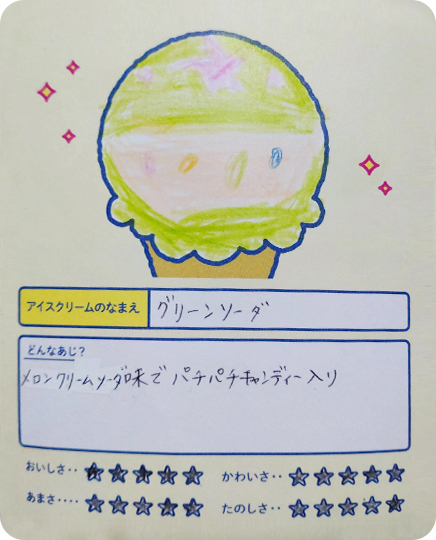 アイスクリームのなまえ グリーンソーダ
どんなあじ?
メロンクリームソーダ味で パチパチキャンディー入り
おいしさ‥ ★★★★★ かわいさ‥ ★★★★★
あまさ‥‥ ★★★★★ たのしさ‥ ★★★★★